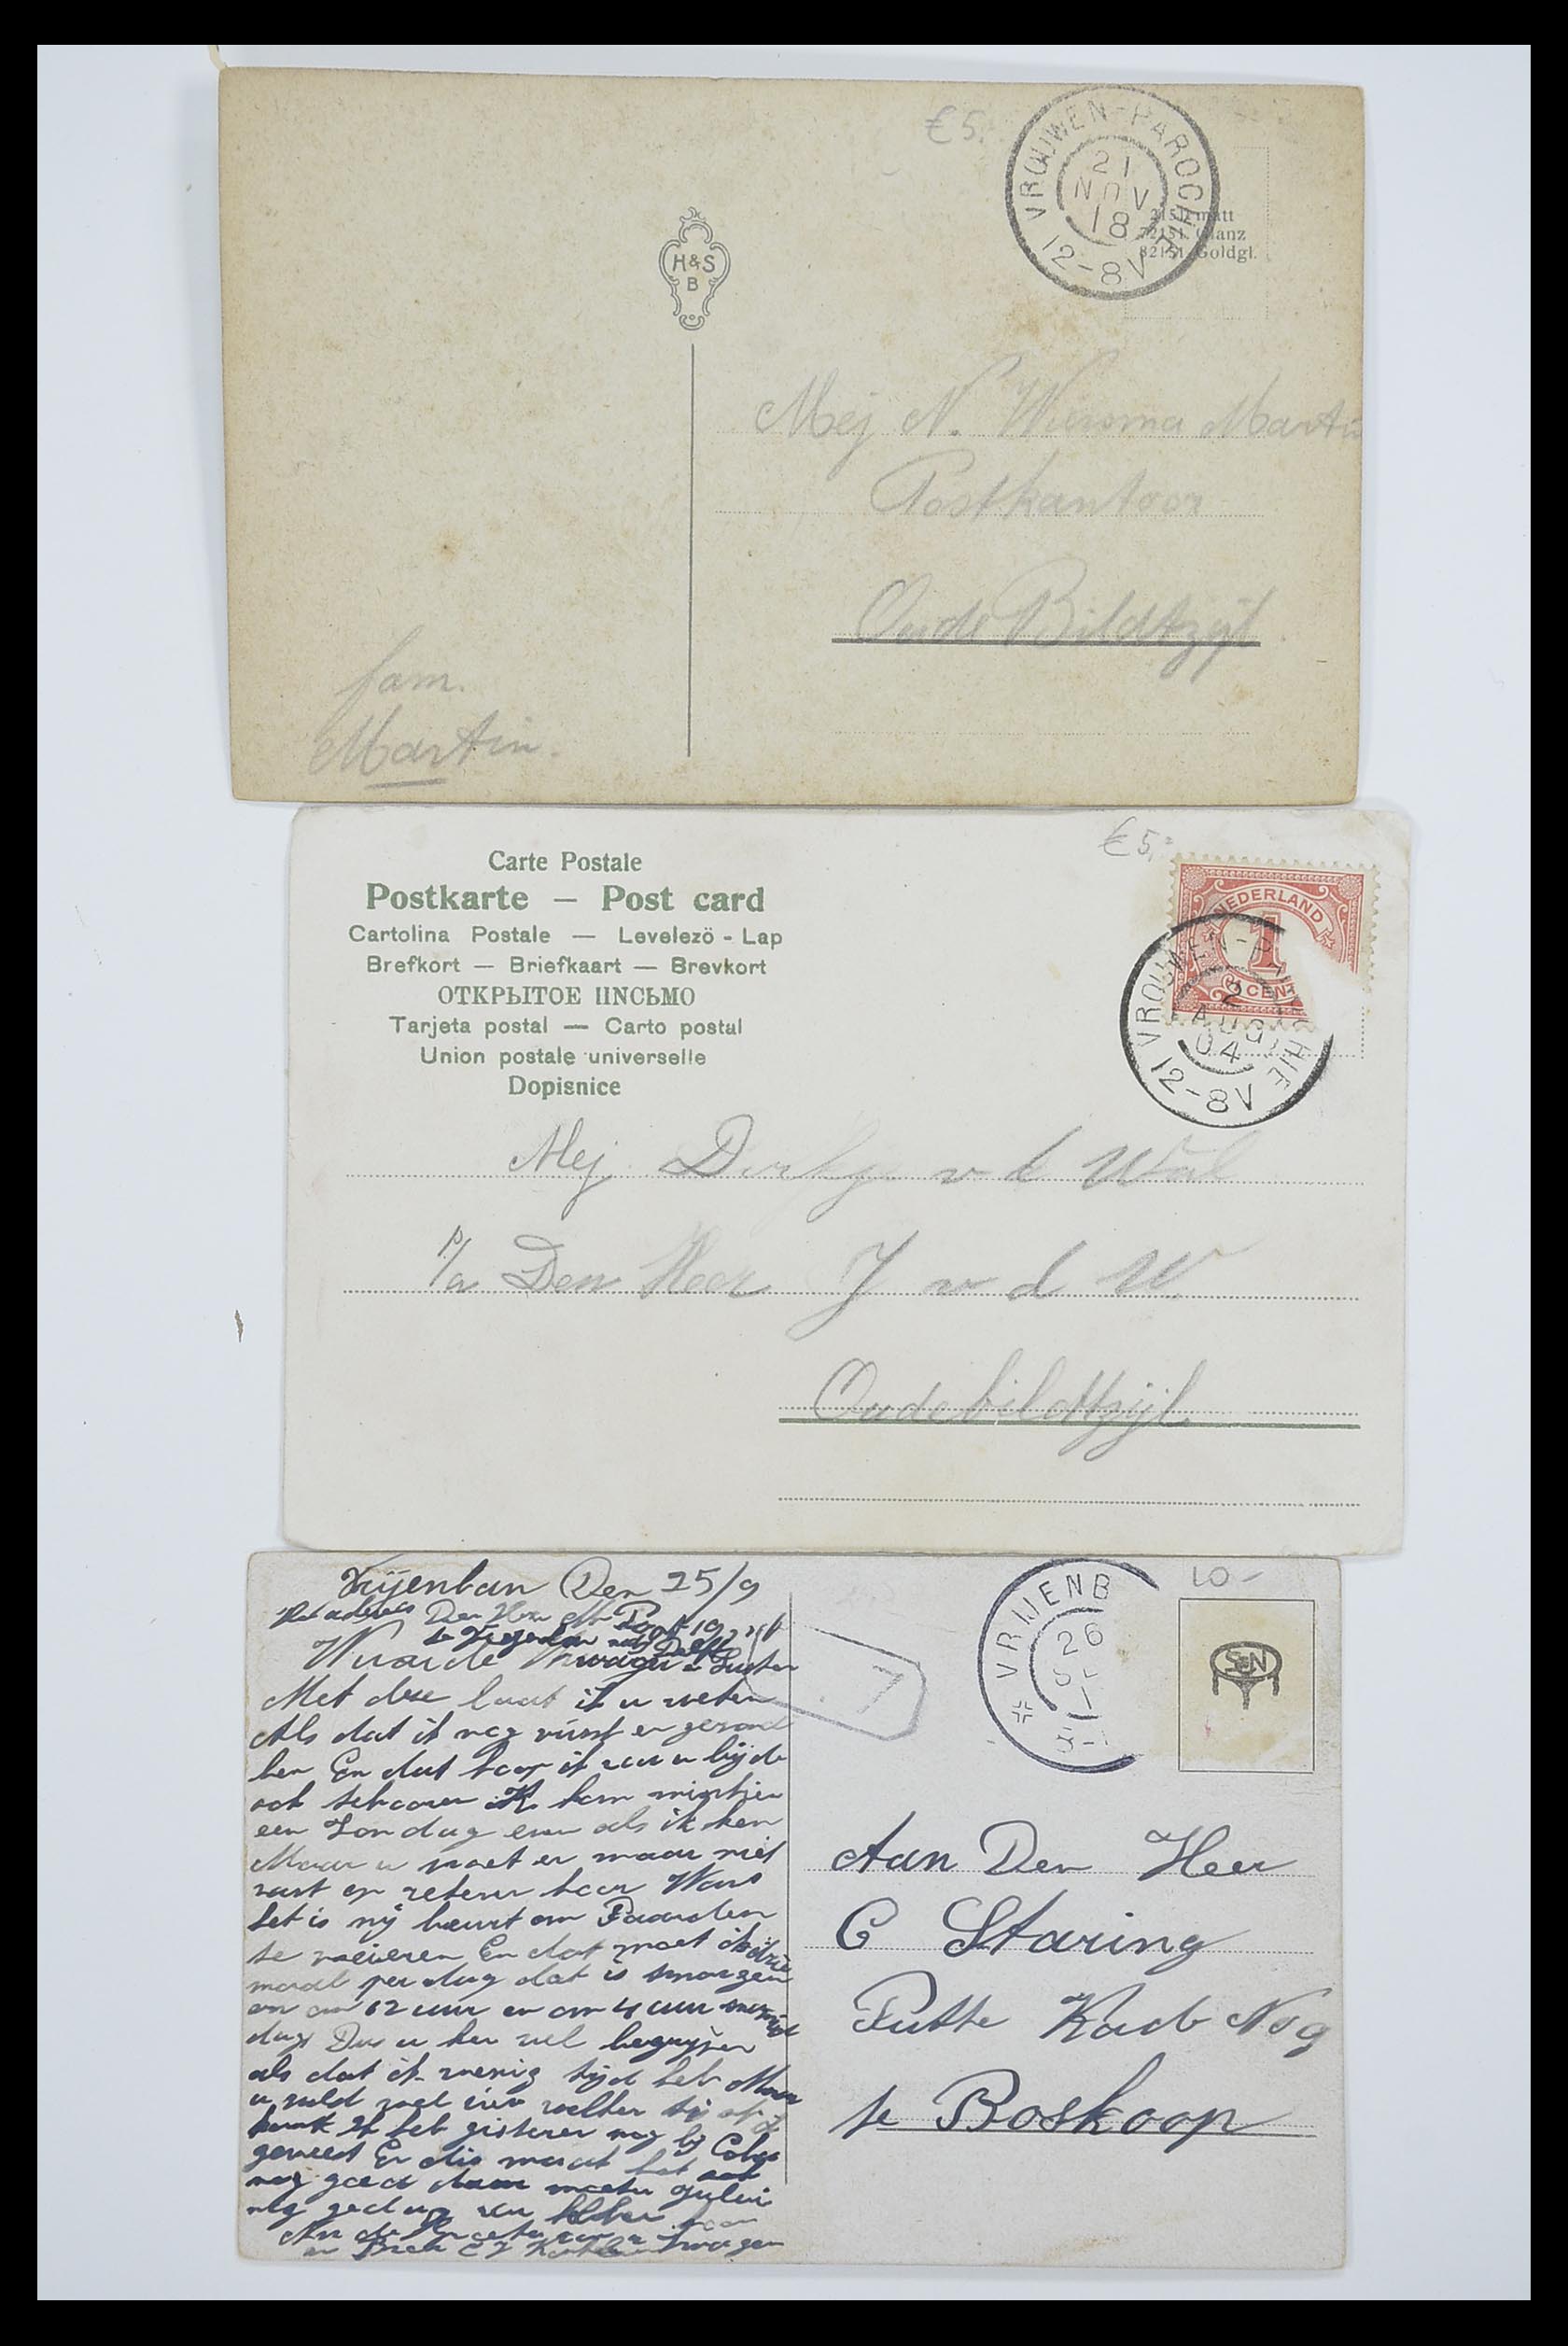 € 5,-
VROUWEN-PAROCHIE
21
NOV
18
12-8V
21511 matt
72151 Glanz
82151 Goldgl.
H&S
B
Mej N. Wiersma Martin
Postkantoor
Oude Bildtzijl
fam.
Martin.
€ 5,=
Carte Postale
Postkarte — Post card
Cartolina Postale — Levelezö - Lap
Brefkort — Briefkaart — Brevkort
ОТКРЫТОЕ ПИСЬМО
Tarjeta postal — Carto postal
Union postale universelle
Dopisnice
NEDERLAND
1
CENT
VROUWEN-PAROCHIE
2
AUG
04
12-8V
Mej v d Wal
p/a Den Heer J v d W.
Oudebildtzijl
Vrijenban Den 25/9
Het adres Den Heer
te Vrijenban Delft
Waarde Zwager en Zuster
Met deze laat ik u weten
Als dat ik nog en gezond
ben En dat hoop ik van u bijde
ook te hooren Ik kom
een Zondag even als ik ken
Maar u moet er maar niet
vast op rekenen hoor Want
het is mij beurt om Paarden
te voeieren En dat moet ik drie
maal per dag dat is smorgens
en om 12 uur en om 4 uur smid
dag Dus u ken wel begrijpen
als dat ik weinig tijd heb Maar
u zuld wel
Ik heb gisteren nog bij
geweest En die maakt het ook
nog goed moeten
nog geduld
Zwager
7
VRIJENB
26
10-
S&N
Aan Den Heer
C Staring
Putte Kade No 9
te Boskoop